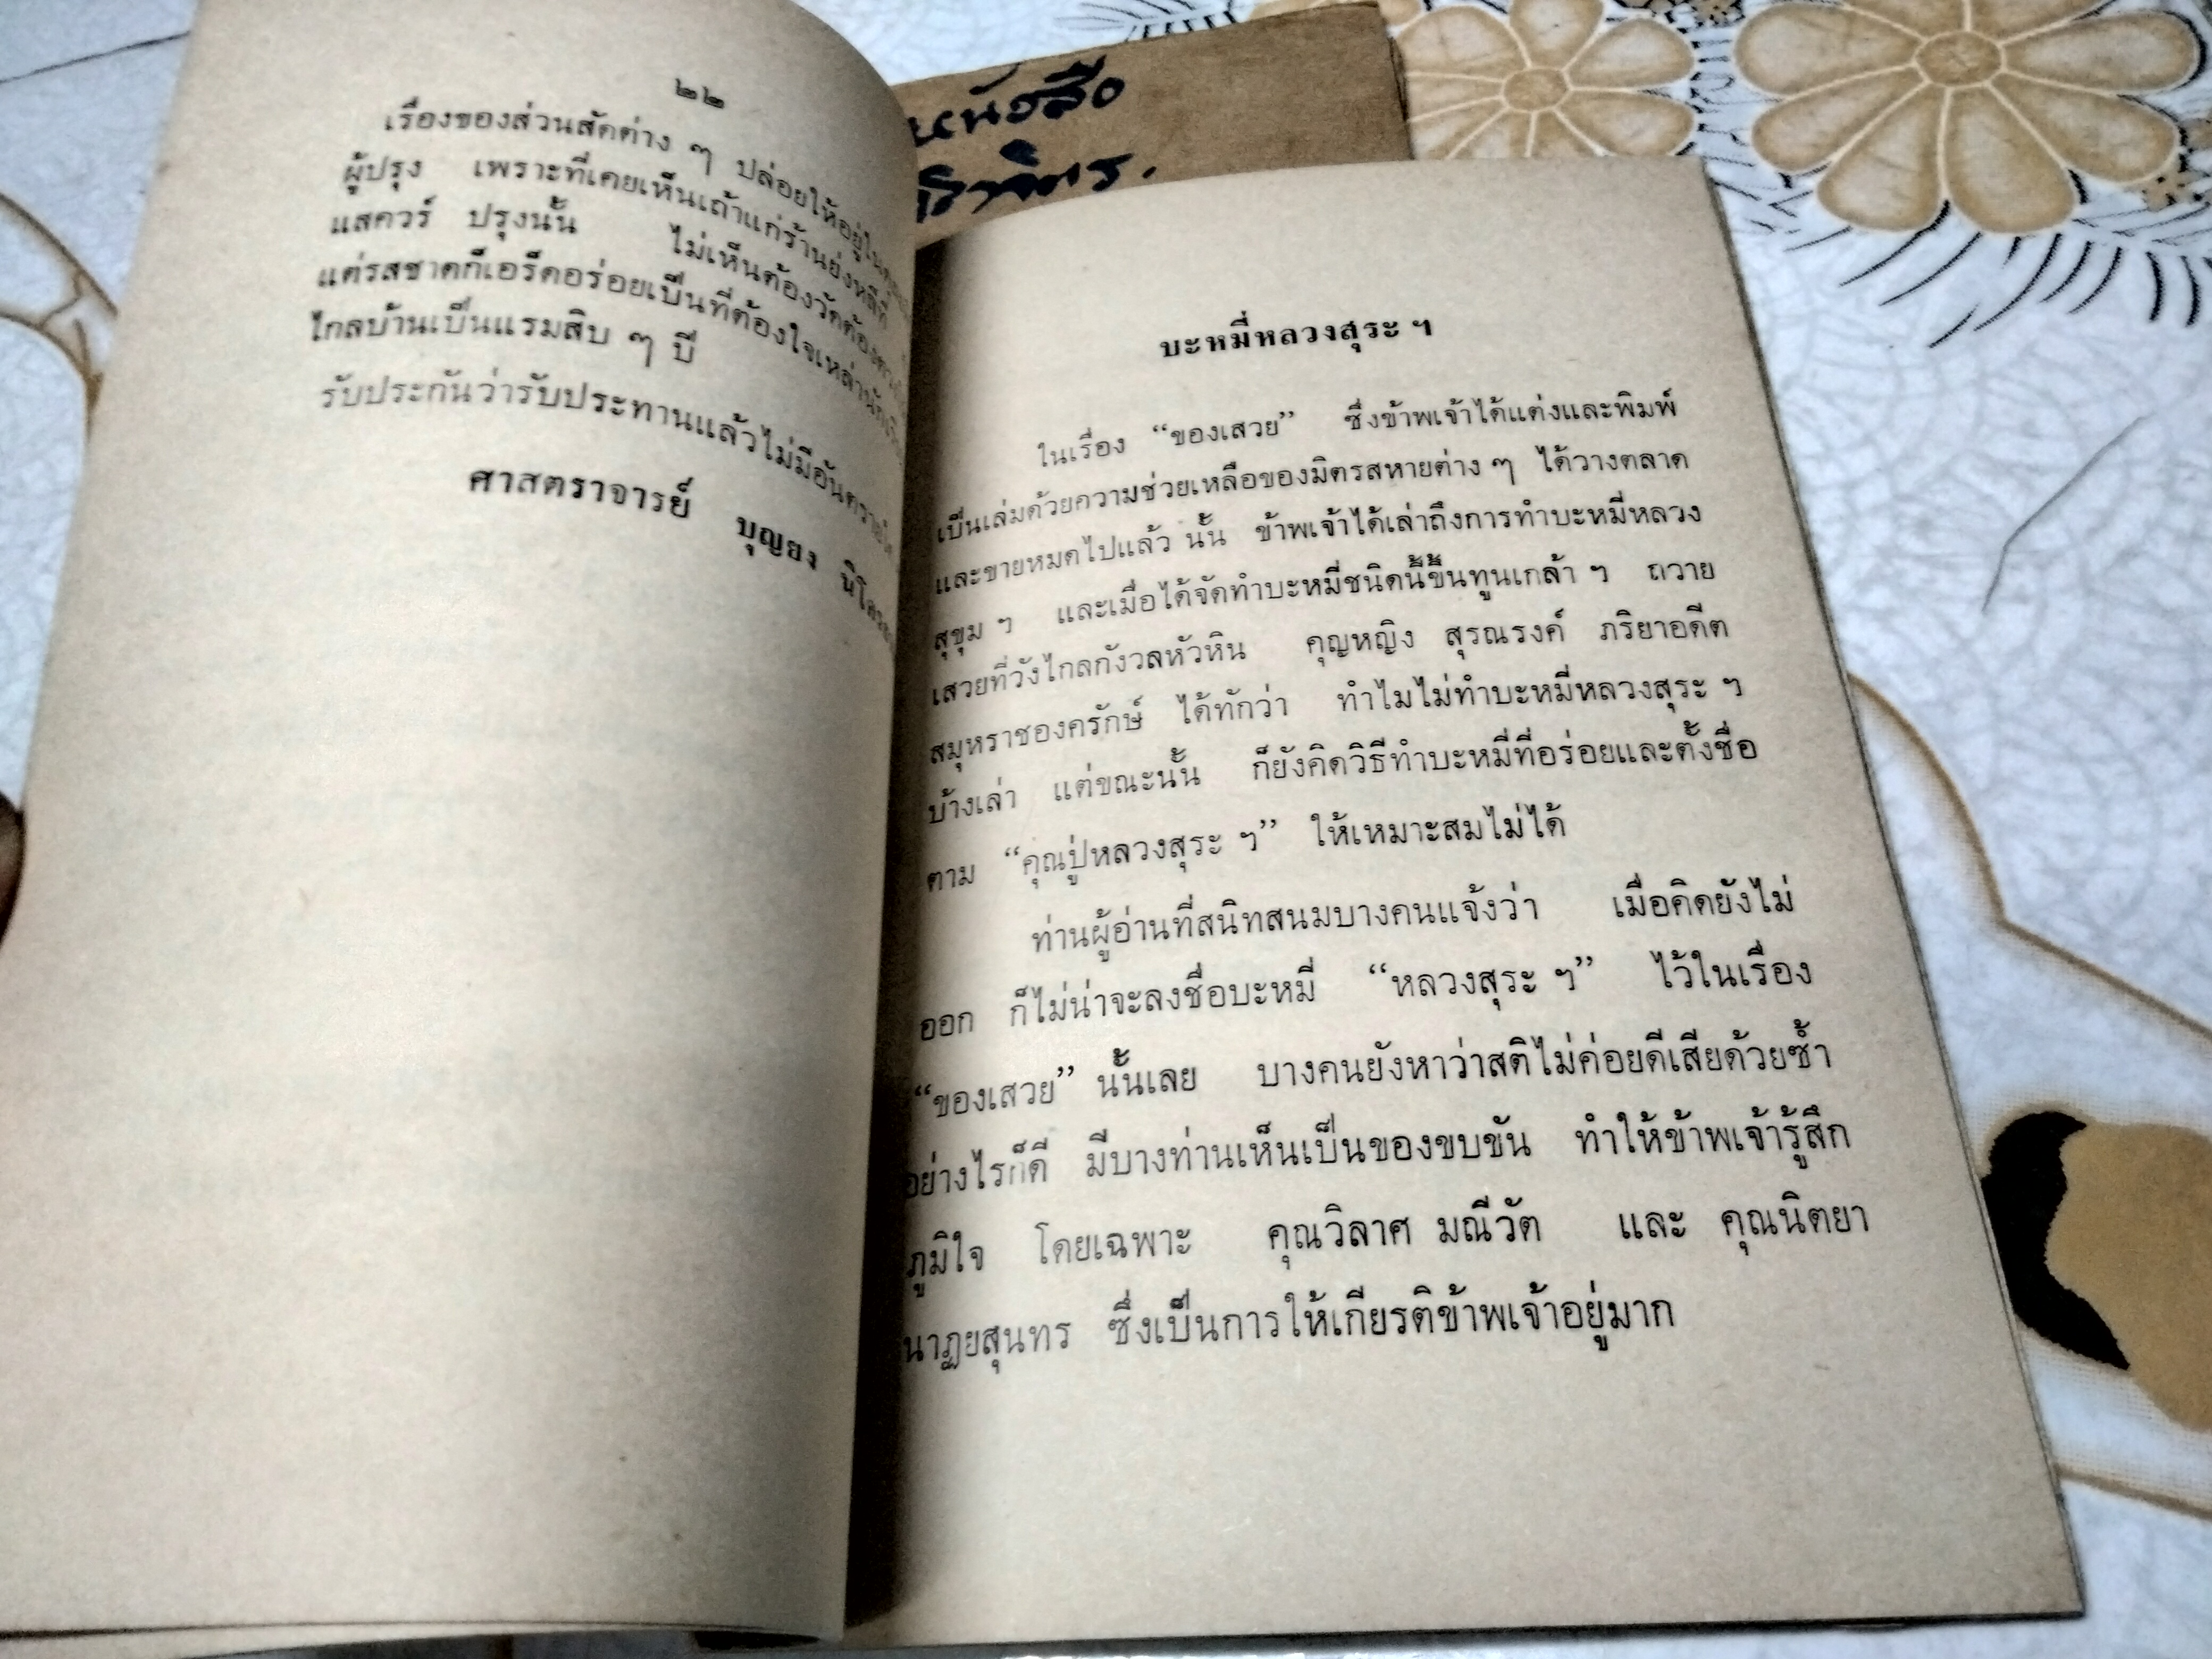 ๒๒
เรื่องของส่วนสัดต่าง ๆ ปล่อยให้อยู่ใน
ผู้ปรุง เพราะที่เคยเห็นเถ้าแก่ร้านย่งหลีที่
แสควร์ ปรุงนั้น ไม่เห็นต้องวัดต้องตวง
แต่รสชาดก็เอร็ดอร่อยเป็นที่ต้องใจเหล่านัก
ไกลบ้านเป็นแรมสิบ ๆ ปี
รับประกันว่ารับประทานแล้วไม่มีอันตราย
ศาสตราจารย์ บุญยง
หนังสือ
บะหมี่หลวงสุระ ฯ
ในเรื่อง “ของเสวย” ซึ่งข้าพเจ้าได้แต่งและพิมพ์
เป็นเล่มด้วยความช่วยเหลือของมิตรสหายต่าง ๆ ได้วางตลาด
และขายหมดไปแล้ว นั้น ข้าพเจ้าได้เล่าถึงการทำบะหมี่หลวง
สุขุม ฯ และเมื่อได้จัดทำบะหมี่ชนิดนี้ขึ้นทูนเกล้า ฯ ถวาย
เสวยที่วังไกลกังวลหัวหิน คุญหญิง สุรณรงค์ ภริยาอดีต
สมุหราชองครักษ์ ได้ทักว่า ทำไมไม่ทำบะหมี่หลวงสุระ ฯ
บ้างเล่า แต่ขณะนั้น ก็ยังคิดวิธีทำบะหมี่ที่อร่อยและตั้งชื่อ
ตาม “คุณปู่หลวงสุระ ฯ” ให้เหมาะสมไม่ได้
ท่านผู้อ่านที่สนิทสนมบางคนแจ้งว่า เมื่อคิดยังไม่
ออก ก็ไม่น่าจะลงชื่อบะหมี่ “หลวงสุระ ฯ” ไว้ในเรื่อง
“ของเสวย” นั้นเลย บางคนยังหาว่าสติไม่ค่อยดีเสียด้วยซ้ำ
อย่างไรก็ดี มีบางท่านเห็นเป็นของขบขัน ทำให้ข้าพเจ้ารู้สึก
ภูมิใจ โดยเฉพาะ คุณวิลาศ มณีวัต และ คุณนิตยา
นาฏยสุนทร ซึ่งเป็นการให้เกียรติข้าพเจ้าอยู่มาก